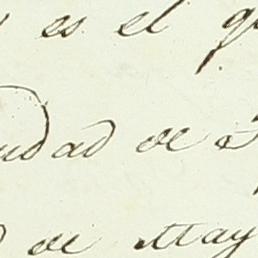 y es el q
udad de
de May